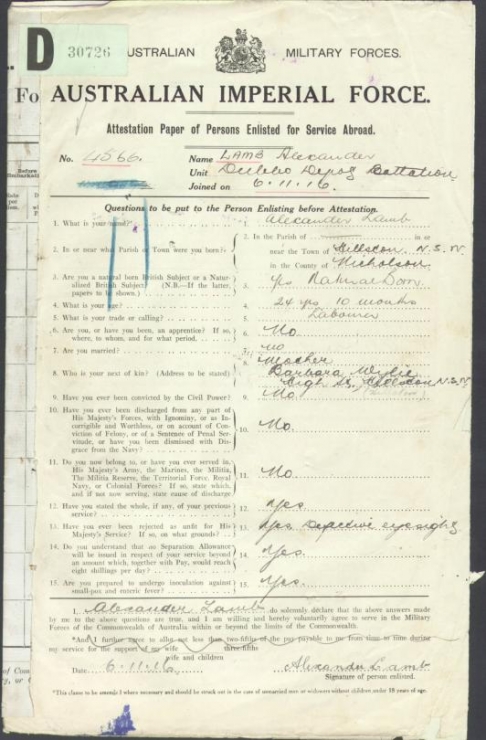 D
30726
AUSTRALIAN MILITARY FORCES.
AUSTRALIAN IMPERIAL FORCE.
Attestation Paper of Persons Enlisted for Service Abroad.
No. 4566. Name LAMB Alexander
Unit Dubbo Depot Battalion
Joined on 6.11.16.
Questions to be put to the Person Enlisting before Attestation.
1. What is your name? 1. Alexander Lamb
2. In or near what Parish or Town were you born? 2. In the Parish of in or
near the Town of Hillston N.S.W
in the County of Nicholson
3. Are you a natural born British Subject or a Natur-
alized British Subject? (N.B.—If the latter,
papers to be shown.) 3. Yes Natural Born
4. What is your age? 4. 24 yrs 10 months
5. What is your trade or calling? 5. Labourer
6. Are you, or have you been, an apprentice? If so,
where, to whom, and for what period. 6. No
7. Are you married? 7. No
8. Who is your next of kin? (Address to be stated) 8. Mother
Barbara Wylie
High St, Hillston N.S.W
9. Have you ever been convicted by the Civil Power? 9. No
10. Have you ever been discharged from any part of
His Majesty's Forces, with Ignominy, or as In-
corrigible and Worthless, or on account of Con-
viction of Felony, or of a Sentence of Penal Ser-
vitude, or have you been Dismissed with Dis-
grace from the Navy? 10. No.
11. Do you now belong to, or have you ever served in,
His Majesty's Army, the Marines, the Militia,
The Militia Reserve, the Territorial Force, Royal
Navy, or Colonial Forces? If so, state which,
and if not now serving, state cause of discharge 11. No
12. Have you stated the whole, if any, of your previous
service? 12. Yes.
13. Have you ever been rejected as unfit for His
Majesty's Service? If so, on what grounds? 13. Yes. Defective eyesight
14. Do you understand that no Separation Allowance
will be issued in respect of your service beyond
an amount which, together with Pay, would reach
eight shillings per day? 14. Yes.
15. Are you prepared to undergo inoculation against
small-pox and enteric fever? 15. Yes.
I, Alexander Lamb do solemnly declare that the above answers made
by me to the above questions are true, and I am willing and hereby voluntarily agree to serve in the Military
Forces of the Commonwealth of Australia within or beyond the limits of the Commonwealth.
*And I further agree to allot not less than two-fifths of the pay payable to me from time to time during
three-fifths
my service for the support of my wife
wife and children
Date 6.11.16. Alexander Lamb
Signature of person enlisted.